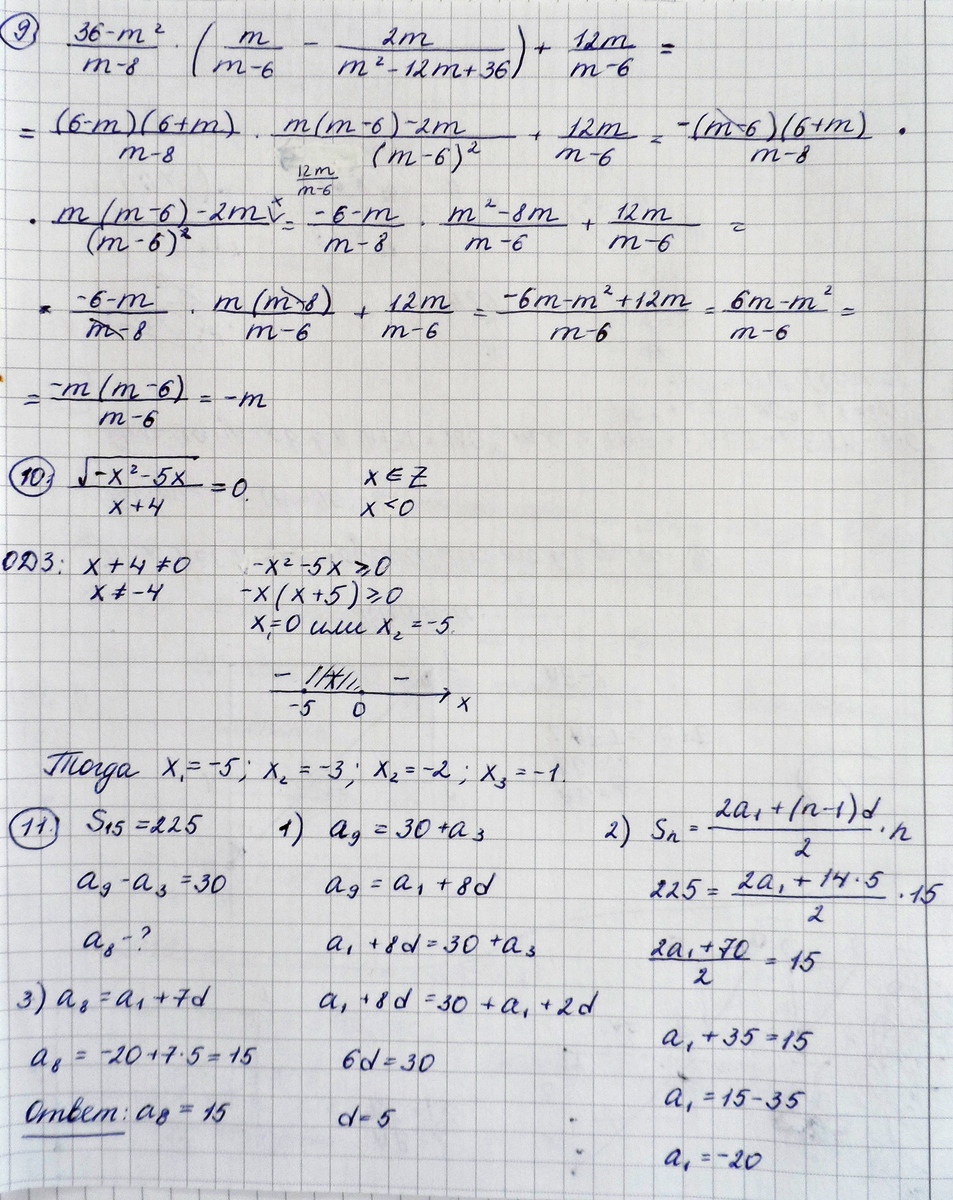 9) (36-m²)/(m-8) · (m/(m-6) - 2m/(m²-12m+36)) + 12m/(m-6) =
= ((6-m)(6+m))/(m-8) · (m(m-6)-2m)/(m-6)² + 12m/(m-6) = (-(m-6)(6+m))/(m-8) ·
· (m(m-6)-2m)/(m-6)² + 12m/(m-6) = (-6-m)/(m-8) · (m²-8m)/(m-6) + 12m/(m-6) =
= (-6-m)/(m-8) · (m(m-8))/(m-6) + 12m/(m-6) = (-6m-m²+12m)/(m-6) = (6m-m²)/(m-6) =
= (-m(m-6))/(m-6) = -m
10) √(-x²-5x)/(x+4) = 0. x ∈ Z
x < 0
ОДЗ: x+4 ≠ 0 -x²-5x ≥ 0
x ≠ -4 -x(x+5) ≥ 0
x₁=0 или x₂ = -5.
- + -
-5 0 x
Тогда x₁ = -5; x₂ = -3; x₂ = -2; x₃ = -1.
11. S₁₅ = 225
a₉ - a₃ = 30
a₈ - ?
1) a₉ = 30 + a₃
a₉ = a₁ + 8d
a₁ + 8d = 30 + a₃
a₁ + 8d = 30 + a₁ + 2d
6d = 30
d = 5
2) Sₙ = (2a₁ + (n-1)d)/2 · n
225 = (2a₁ + 14·5)/2 · 15
(2a₁ + 70)/2 = 15
a₁ + 35 = 15
a₁ = 15 - 35
a₁ = -20
3) a₈ = a₁ + 7d
a₈ = -20 + 7·5 = 15
Ответ: a₈ = 15